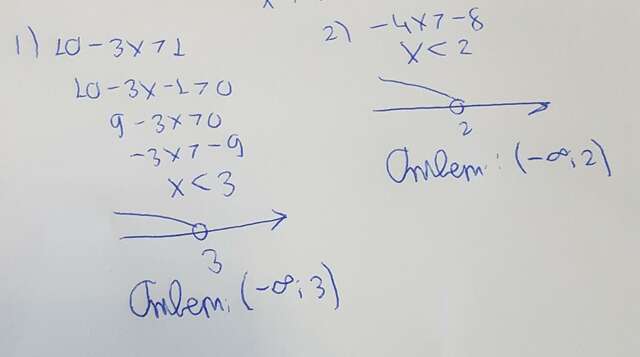 1) 10 - 3x > 1
10 - 3x - 1 > 0
9 - 3x > 0
-3x > -9
x < 3
3
Ответ: (-∞; 3)
2) -4x > -8
x < 2
2
Ответ: (-∞; 2)